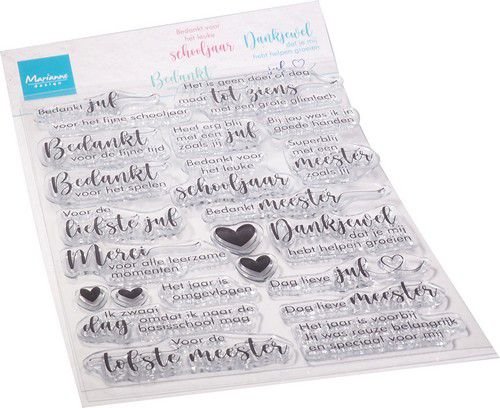 Bedankt voor
het leuke
schooljaar
Dankjewel
dat je mij
hebt helpen groeien
Bedankt
juf
Marianne
design
Bedankt juf
voor het fijne schooljaar
Het is geen doei of dag
maar tot ziens
met een grote glimlach
Bedankt
voor de fijne tijd
Heel erg blij
met een juf
zoals jij
Bij jou was ik in
goede handen
Bedankt
voor het spelen
Bedankt voor
het leuke
schooljaar
Superblij
met een
meester
zoals jij
Voor de
liefste juf
Bedankt meester
Merci
voor alle leerzame
momenten
Dankjewel
dat je mij
hebt helpen groeien
Het jaar is
omgevlogen
Dag lieve juf
Ik zwaai
dag
omdat ik naar de
basisschool mag
Dag lieve meester
Voor de
tofste meester
Het jaar is voorbij
Jij was reuze belangrijk
en speciaal voor mij